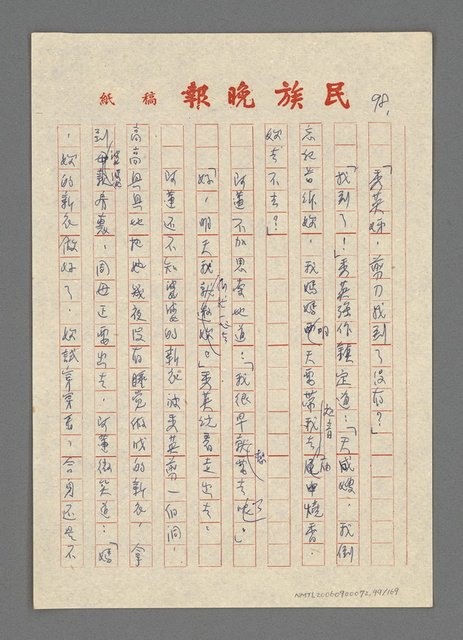 98.
民族晚報 稿紙
「秀英姊,剪刀找到了沒有?」
「找到了!」秀英強作鎮定道:「天成嫂,我倒
忘記告訴妳,我媽媽明天要帶我去觀音廟中燒香,
妳去不去?」
阿蓮不加思索地道:「我很早就想去了」
「好,明天我就
秀英說着走出去。
阿蓮還不知婆婆的新衣被秀英剪一個洞,
高高興興地把她幾夜沒有睡覺做成的新衣,拿
到婆婆房裏,阿母正要出去,阿蓮微笑道:「媽
,妳的新衣做好了,妳試穿穿看,合身還是不
NMTL20060900072.99/169